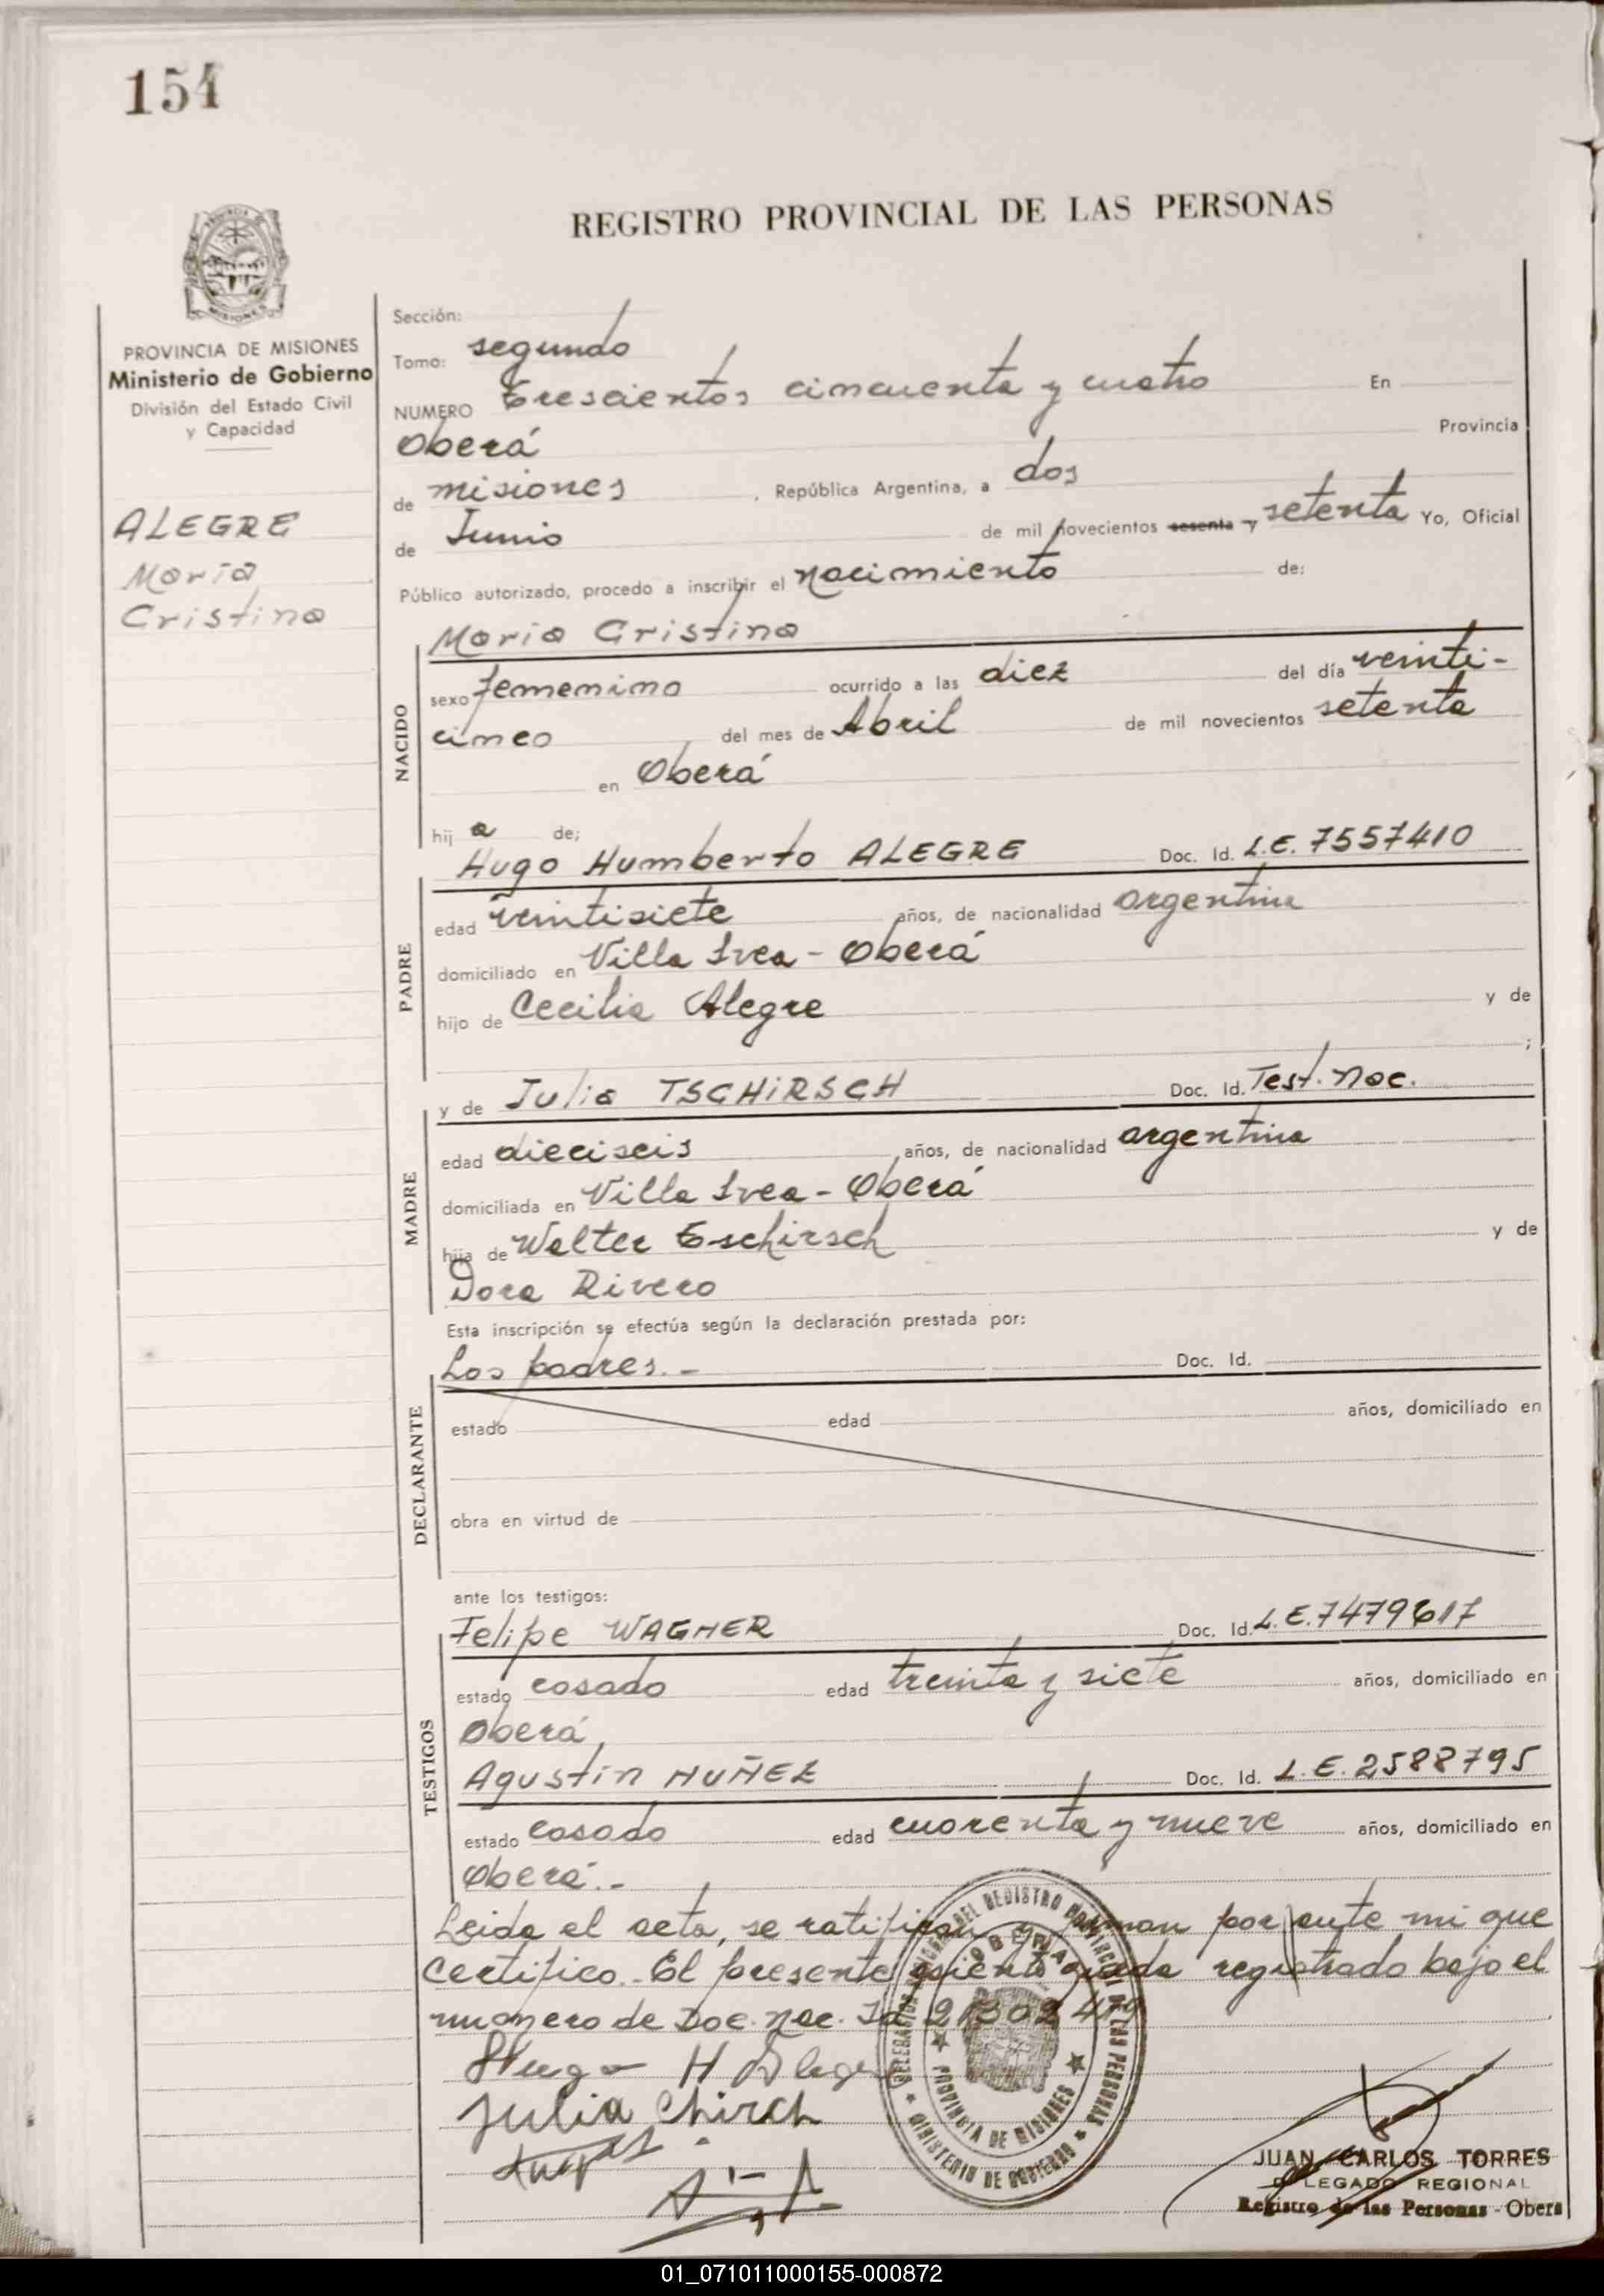 154
REGISTRO PROVINCIAL DE LAS PERSONAS
PROVINCIA DE MISIONES
Ministerio de Gobierno
División del Estado Civil
y Capacidad
ALEGRE
Maria
Cristina
Sección:
Tomo: segundo
NUMERO trescientos cincuenta y cuatro En
Oberá Provincia
de misiones, República Argentina, a dos
de Junio de mil novecientos sesenta y setenta Yo, Oficial
Público autorizado, procedo a inscribir el nacimiento de:
NACIDO
Maria Cristina
sexo femenino ocurrido a las diez del día veinti-
cinco del mes de Abril de mil novecientos setenta
en Oberá
hij a de;
PADRE
Hugo Humberto ALEGRE Doc. Id. L.E. 7557410
edad veintisiete años, de nacionalidad argentina
domiciliado en Villa Svea - Oberá
hijo de Cecilia Alegre y de
;
MADRE
y de Julia TSCHIRSCH Doc. Id. Test. Nac.
edad dieciseis años, de nacionalidad argentina
domiciliada en Villa Svea - Oberá
hija de Walter Tschirsch y de
Dora Rivero
Esta inscripción se efectúa según la declaración prestada por:
DECLARANTE
Los padres.- Doc. Id.
estado edad años, domiciliado en
obra en virtud de
ante los testigos:
TESTIGOS
Felipe WAGNER Doc. Id. L.E. 7479617
estado casado edad treinta y siete años, domiciliado en
Oberá,
Agustin NUÑEZ Doc. Id. L.E. 2588795
estado casado edad cuarenta y nueve años, domiciliado en
Oberá.-
Leida el acta, se ratifican y firman por ante mi que
certifico.- El presente asiento queda registrado bajo el
numero de Doc. Nac. Id 21302479
Hugo H Alegre
Julia Chirch
DELEGACION DEL REGISTRO PROVINCIAL DE LAS PERSONAS
OBERA
PROVINCIA DE MISIONES
MINISTERIO DE GOBIERNO
JUAN CARLOS TORRES
DELEGADO REGIONAL
Registro de las Personas - Obera
01_071011000155-000872